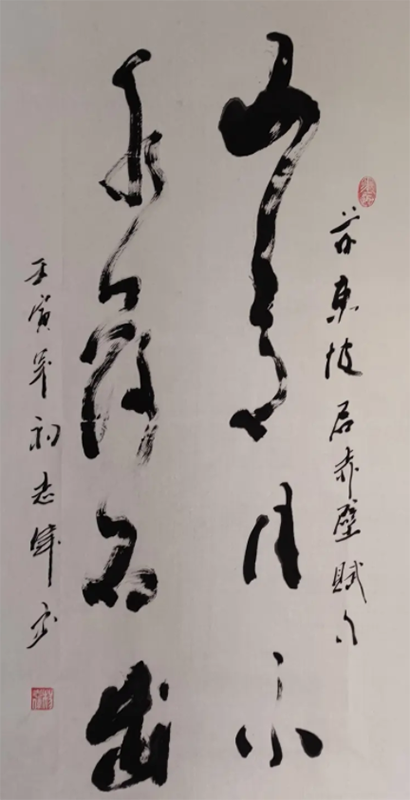 苏东坡后赤壁赋句
山高月小
水落石出
壬寅年初志